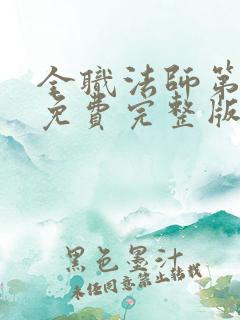 全職法師第
免費完整版
黑色墨汁
未経同意禁止転載